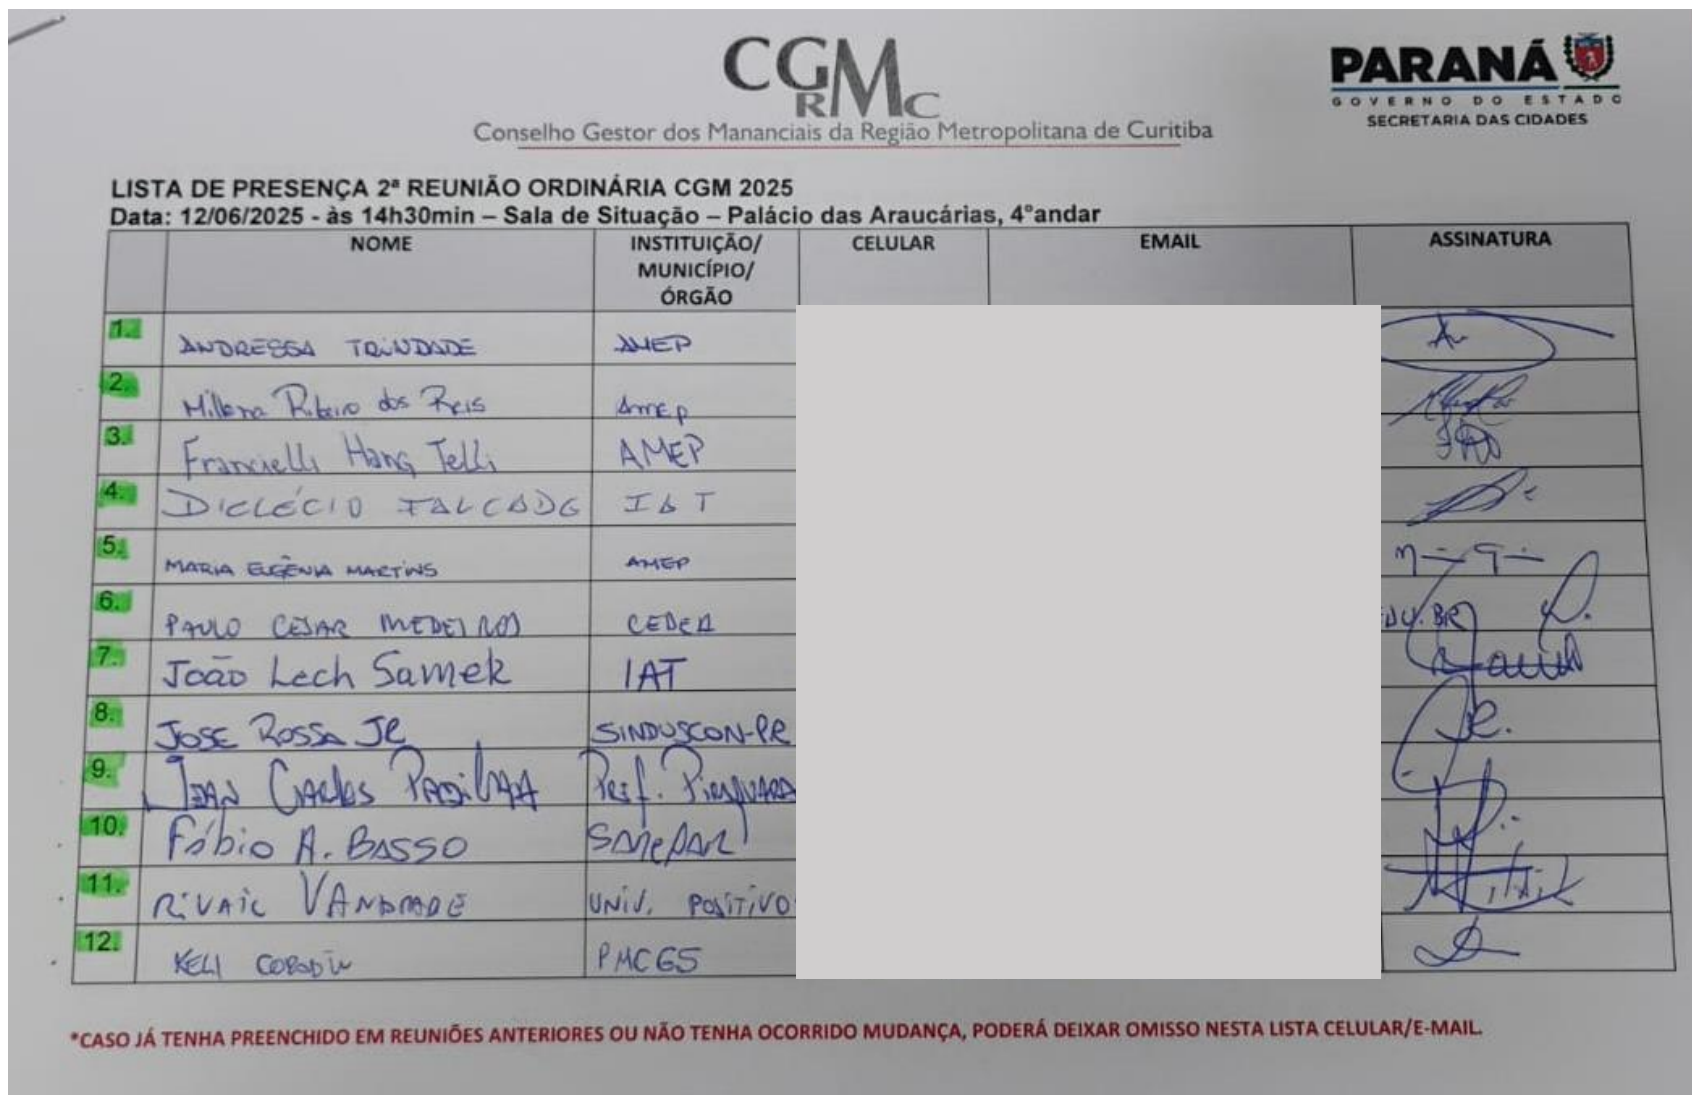 CGM
RMC
Conselho Gestor dos Mananciais da Região Metropolitana de Curitiba
PARANÁ
GOVERNO DO ESTADO
SECRETARIA DAS CIDADES
LISTA DE PRESENÇA 2ª REUNIÃO ORDINÁRIA CGM 2025
Data: 12/06/2025 - às 14h30min – Sala de Situação – Palácio das Araucárias, 4°andar
NOME INSTITUIÇÃO/ MUNICÍPIO/ ÓRGÃO CELULAR EMAIL ASSINATURA
1. ANDRESSA TRINDADE AMEP
2. Millena Ribeiro dos Reis Amep
3. Francielli Hang Telli AMEP
4. DIELÉCIO FALCADE IAT
5. MARIA EUGÊNIA MARTINS AMEP
6. PAULO CESAR MEDEIROS CEDEA EDU.BR
7. João Lech Samek IAT
8. JOSE ROSSA JR SINDUSCON-PR
9. JEAN CARLOS PADILHA Pref. PIRAQUARA
10. Fábio A. BASSO SANEPAR
11. RIVAIL VANDRADE UNIV. POSITIVO
12. KELI PMCGS
*CASO JÁ TENHA PREENCHIDO EM REUNIÕES ANTERIORES OU NÃO TENHA OCORRIDO MUDANÇA, PODERÁ DEIXAR OMISSO NESTA LISTA CELULAR/E-MAIL.